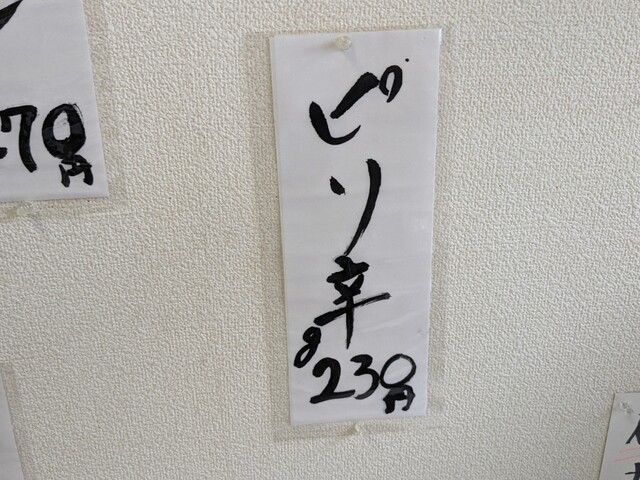 ピリ辛
230円
70円